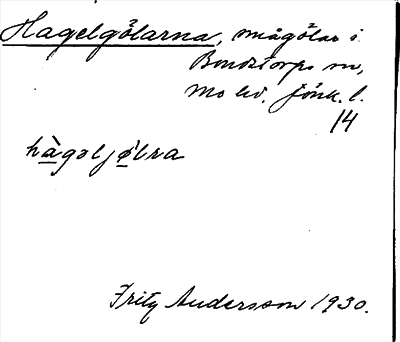 Hagelgölarna, smågölar i
Bondstorps sn,
Mo hd. Jönk. l.
14
hàgəljø̀lra
Fritz Andersson 1930.